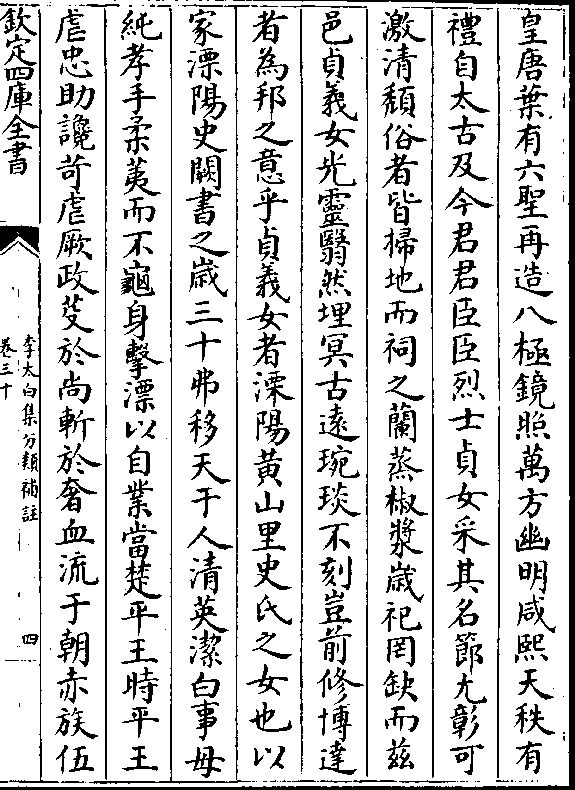 皇唐葉有六聖再造八極鏡照萬方幽明咸熙天秩有
禮自太古及今君君臣臣烈士貞女采其名節尤彰可
激清頽俗者皆掃地而祠之蘭蒸椒漿歳祀罔缺而兹
邑貞義女光靈翳然埋冥古逺琬琰不刻豈前修博達
者為邦之意乎貞義女者溧陽黄山里史氏之女也以
家溧陽史闕書之歳三十弗移天于人清英潔白事母
純孝手柔荑而不龜身擊漂以自業當楚平王時平王
虐忠助讒苛虐厥政芟於尚斬於奢血流于朝赤族伍
欽定四庫全書
李太白集分類補註
卷三十
四